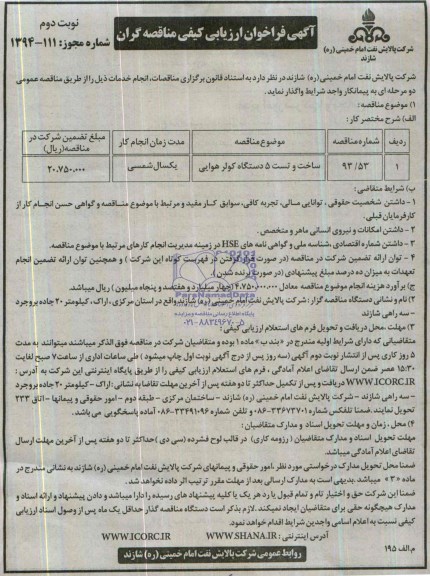 نوبت دوم
آگهی فراخوان ارزیابی کیفی مناقصه گران
شماره مجوز: ۱۱۱-۱۳۹۴
شرکت پالایش نفت امام خمینی (ره)
شازند
شرکت پالایش نفت امام خمینی (ره) شازند در نظر دارد به استناد قانون برگزاری مناقصات، انجام خدمات ذیل را از طریق مناقصه عمومی
دو مرحله ای به پیمانکار واجد شرایط واگذار نماید.
۱) موضوع مناقصه:
الف) شرح مختصر کار:
ردیف شماره مناقصه موضوع مناقصه مدت زمان انجام کار مبلغ تضمین شرکت در مناقصه (ریال)
۱ ۹۳/۵۳ ساخت و تست ۵ دستگاه کولر هوایی یکسال شمسی ۲۰.۷۵۰.۰۰۰
ب) شرایط متقاضی:
۱ - داشتن شخصیت حقوقی ، توانایی مالی، تجربه کافی، سوابق کار مفید و مرتبط با موضوع مناقصه و گواهی حسن انجام کار از
کارفرمایان قبلی.
۲ - داشتن امکانات و نیروی انسانی ماهر و متخصص.
۳ - داشتن شماره اقتصادی ،شناسه ملی و گواهی نامه های HSE در زمینه مدیریت انجام کارهای مرتبط با موضوع مناقصه.
۴ - توان ارائه تضمین شرکت در مناقصه (در صورت قرار گرفتن در فهرست کوتاه این شرکت ) و همچنین توان ارائه تضمین انجام
تعهدات به میزان ده درصد مبلغ پیشنهادی (در صورت برنده شدن ).
ج) برآورد هزینه انجام موضوع مناقصه معادل ۴.۷۵۰.۰۰۰.۰۰۰ (چهار میلیارد و هفتصد و پنجاه میلیون ) ریال میباشد.
۲) نام و نشانی دستگاه مناقصه گزار : شرکت پالایش نفت امام خمینی (ره) شازند واقع در استان مرکزی ، اراک، کیلومتر ۲۰ جاده بروجرد
- سه راهی شازند
۳) مهلت ،محل دریافت و تحویل فرم های استعلام ارزیابی کیفی :
متقاضیانی که دارای شرایط اولیه مندرج در «بند ب ماده ۱ بوده و متقاضیان شرکت در مناقصه فوق الذکر میباشند میتوانند به مدت
۵ روز کاری پس از انتشار نوبت دوم آگهی (سه روز پس از درج آگهی نوبت اول چاپ میشود ) طی ساعات اداری از ساعت ۷ صبح لغایت
۱۵:۳۰ عصر ضمن ارسال تقاضای اعلام آمادگی ، فرم های استعلام ارزیابی کیفی را از طریق پایگاه اینترنتی این شرکت به آدرس :
WWW.ICORC.IR دریافت و پس از تکمیل حداکثر تا دو هفته پس از آخرین مهلت تقاضا به نشانی : اراک - کیلومتر ۲۰ جاده بروجرد
- سه راهی شازند - شرکت پالایش نفت امام خمینی (ره) شازند - ساختمان مرکزی - طبقه دوم - امور حقوقی و پیمانها - اتاق ۲۳۳
تحویل نمایند. ضمنا تلفکس شماره ۳۳۶۷۳۷۰۱-۰۸۶ و تلفن شماره ۳۳۴۹۱۰۹۶-۰۸۶ آماده پاسخگویی می باشد.
۴) محل ، زمان و مهلت تحویل اسناد و مدارک متقاضیان :
مهلت تحویل اسناد و مدارک متقاضیان ( رزومه کاری) در قالب لوح فشرده (سی دی )حداکثر تا دو هفته پس از آخرین مهلت ارسال
تقاضای اعلام آمادگی میباشد.
ضمنا محل تحویل مدارک درخواستی مورد نظر ،امور حقوقی و پیمانهای شرکت پالایش نفت امام خمینی (ره) شازند به نشانی مندرج در
ماده «۳» میباشد .بدیهی است به مدارک ارسالی بعد از مهلت مقرر ترتیب اثر داده نخواهد شد.
ضمنا این شرکت حق و اختیار تام و تمام قبول یا رد هر یک یا کلیه پیشنهاد های رسیده را دارا میباشد و دادن پیشنهاد و ارائه اسناد و
مدارک هیچگونه حقی برای متقاضیان ایجاد نمیکند .لازم بذکر است دستگاه مناقصه گذار حداقل یک ماه پس از وصول اسناد ارزیابی
کیفی نسبت به اعلام اسامی واجدین شرایط اقدام خواهد نمود.
آدرس اینترنتی : WWW.SHANA.IR WWW.ICORC.IR
م.الف ۱۹۵
روابط عمومی شرکت پالایش نفت امام خمینی (ره) شازند
ParsNamadData
۰۲۱-۸۸۳۴۹۶۷۰-۵